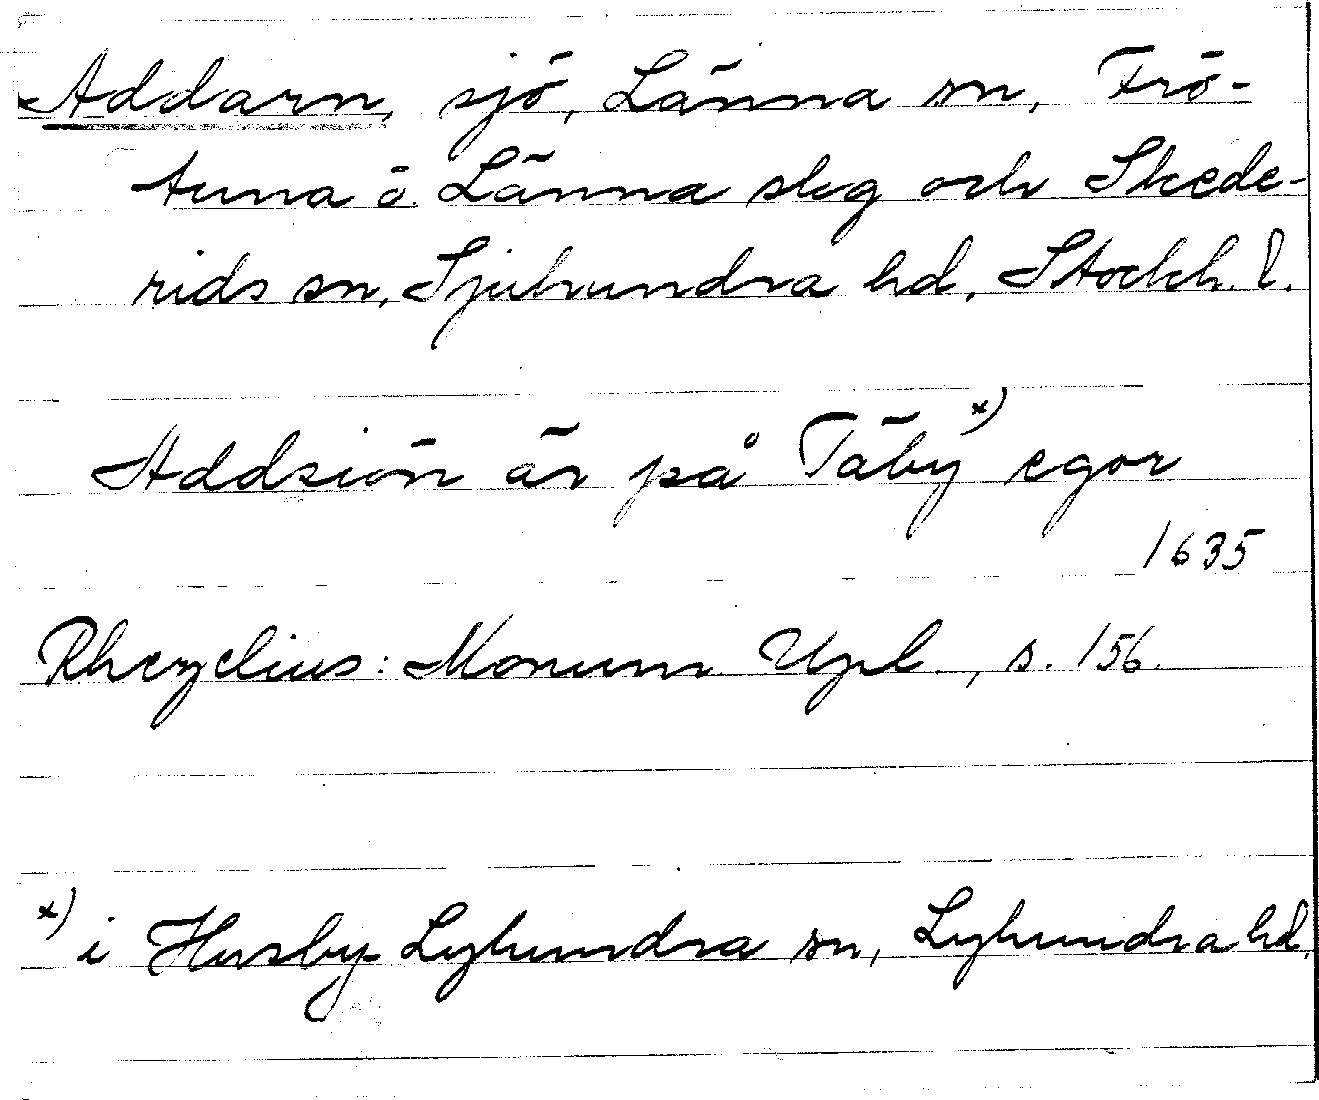 Addarn, sjö, Länna sn, Frö-
tuna o. Länna skg och Skede-
rids sn, Sjuhundra hd, Stockh. l.
Addsiön är på Täby x) egor
1635
Rhezelius: Monum. Upl., s. 156.
x) i Husby-Lyhundra sn, Lyhundra hd.